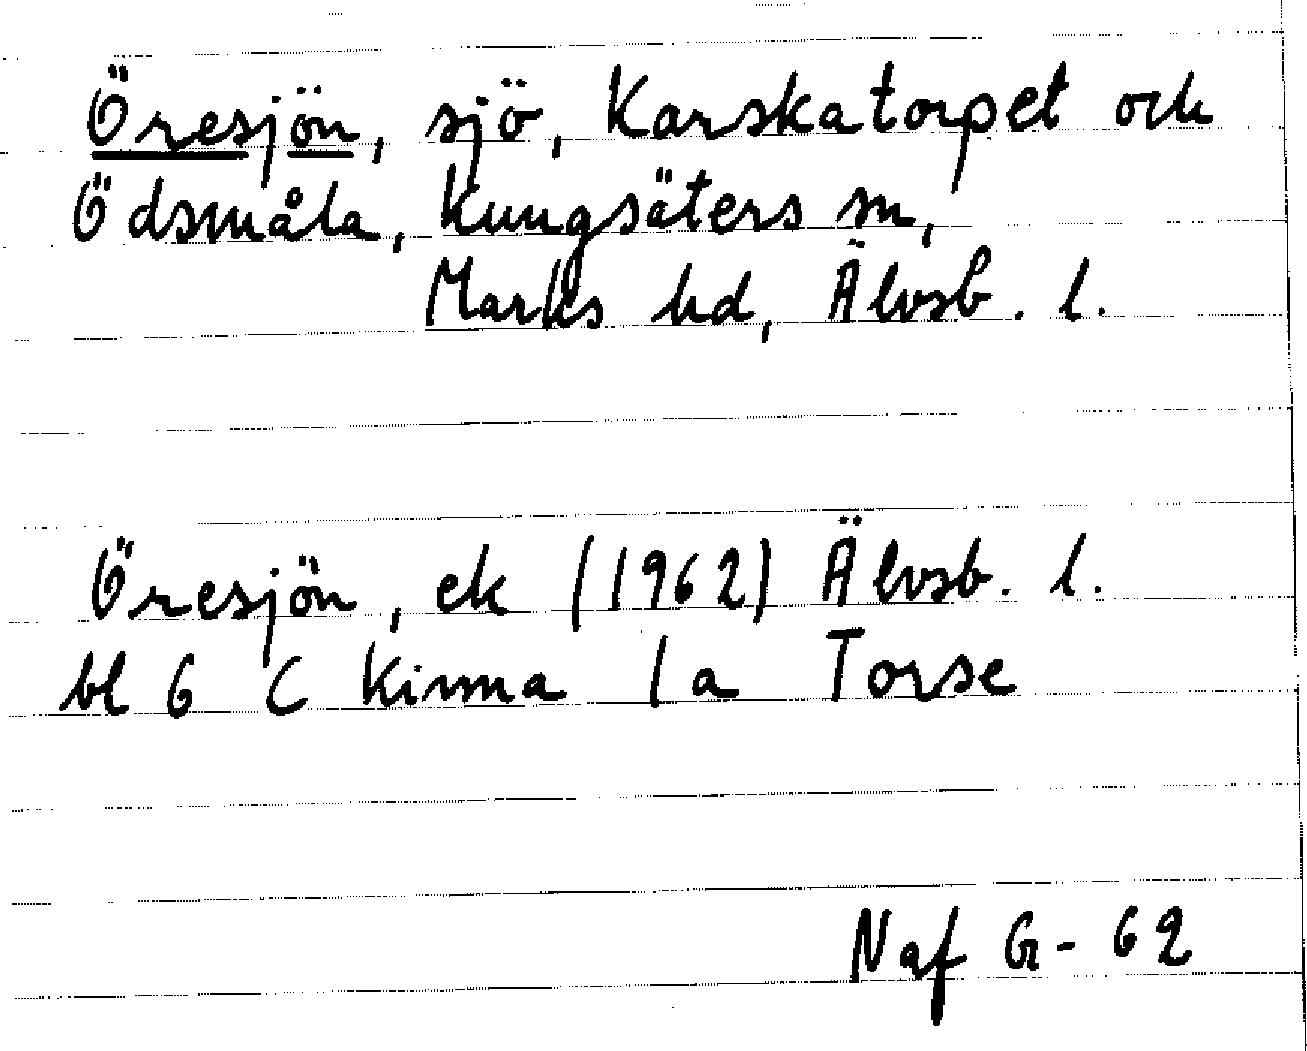 Öresjön, sjö, Karskatorpet och
Ödsmåla, Kungsäters sn,
Marks hd, Älvsb. l.
Öresjön, ek (1962) Älvsb. l.
bl 6 C Kinna 1 a Torse
Naf G-62